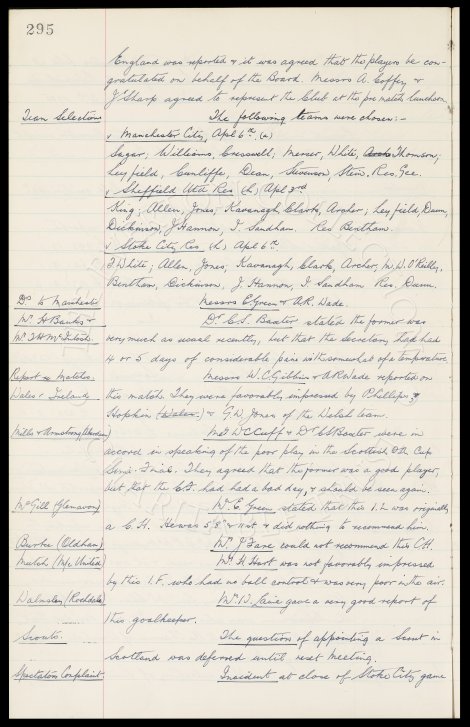 295
England was reported & it was agreed that the players be con-
gratulated on behalf of the Board. Messrs A. Coffey &
J. Sharp agreed to represent the Club at the pre match luncheon.
Team Selections The following teams were chosen:-
v Manchester City, Apl 6th. (a)
Sagar; Williams, Cresswell; Mercer, White, Thomson;
Leyfield, Cunliffe, Dean, Stevenson, Stein. Res. Gee.
v Sheffield Utd Res (h) Apl 3rd
King; Allen, Jones; Kavanagh, Clark, Archer; Leyfield, Dunn,
Dickinson, J. Hannon, T. Sandham. Res Bentham.
v Stoke City Res. (h) Apl 6th.
F. White; Allen, Jones; Kavanagh, Clark, Archer; W. O'Reilly,
Bentham, Dickinson, J. Hannon, T. Sandham. Res. Dunn.
Dr. to Manchester Messrs E. Green & A.R. Wade.
Mr. H. Banks & Dr. C.S. Baxter stated the former was
Mr. T.H. McIntosh. very much as usual recently, but that the Secretary had had
4 or 5 days of considerable pain with somewhat of a temperature
Report re Matches. Messrs W.C. Gibbins & A.R. Wade reported on
Wales v Ireland. this match. They were favorably impressed by Phillips,
Hopkin (Wales) & G.W. Jones of the Welsh team.
Mills & Armstrong (Aberdeen) Mr W.C. Cuff & Dr C.S. Baxter were in
accord in speaking of the poor play in the Scottish Cup
Semi-Final. They agreed that the former was a good player,
but that the C.F. had had a bad day, & should be seen again.
McGill (Glenavon) Mr. E. Green stated that this I.L. was originally
a C.H. He was 5'8" & 11st & did nothing to recommend him.
Burke (Oldham) Mr. J. Fare could not recommend this C.H.
Mutch (M/c United) Mr. H. Hart was not favorably impressed
by this I.F. who had no ball control & was very poor in the air.
Walmsley (Rochdale) Mr. W. gave a very good report of
this goalkeeper.
Scouts. The question of appointing a Scout in
Scotland was deferred until next meeting.
Spectators Complaint Incident at close of Stoke City game